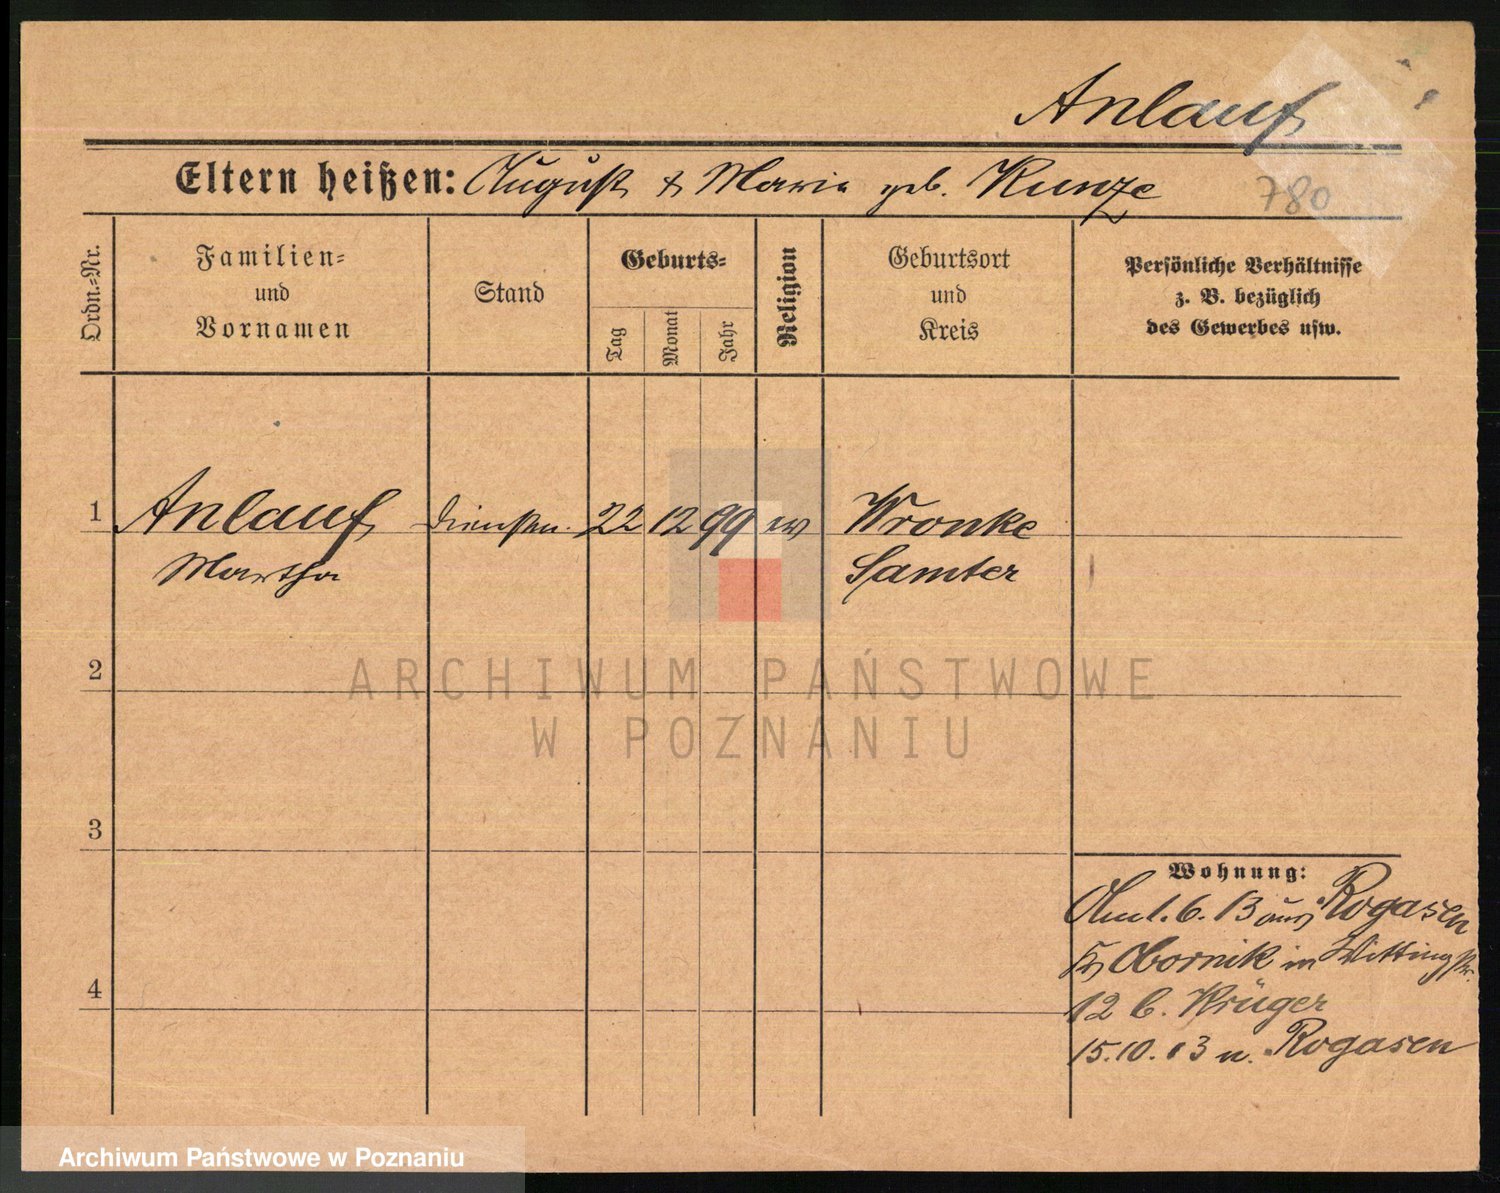 Anlauf
Eltern heißen: August u Marie geb. Kunze
780
Ordn.-Nr.
Familien-
und
Vornamen
Stand
Geburts-
Tag
Monat
Jahr
Religion
Geburtsort
und
Kreis
Persönliche Verhältnisse
z. B. bezüglich
des Gewerbes usw.
1 Anlauf 22 12 99 ev Wronke
Martha Samter
2
ARCHIWUM PAŃSTWOWE
W POZNANIU
3
Wohnung:
1.6.13 aus Rogasen
Kr Obornik in Wittingstr.
4
12 b. Krüger
15.10.13 n. Rogasen
Archiwum Państwowe w Poznaniu